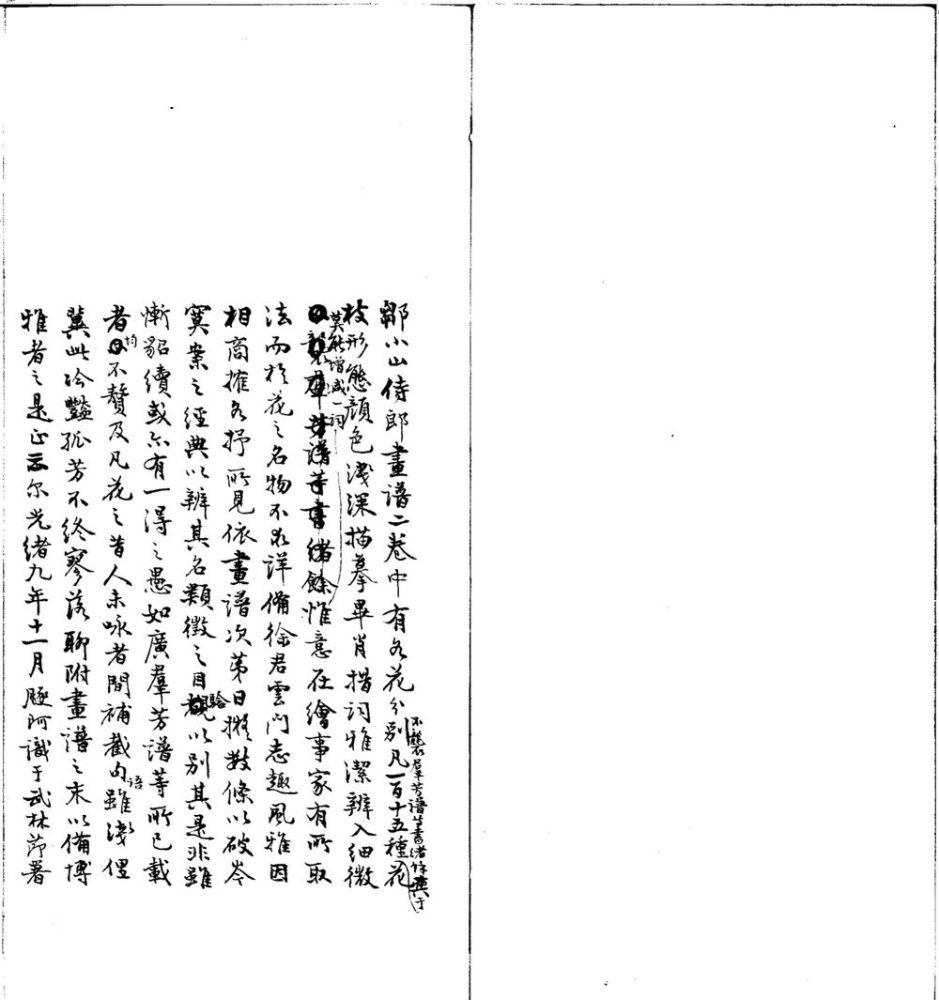 鄒小山侍郎畫譜二卷中有各花分別凡一百十五種花
不襲羣芳譜等書緒餘
枝形態顏色淺深描摹畢肖措詞雅潔辨入細微
莫能增減一詞
羣芳譜等書緒餘惟意在繪事家有所取
法而於花之名物不求詳備徐君雲門志趣風雅因
相商搉各抒所見依畫譜次第日撰數條以破岑
寞案之經典以辨其名類徵之目驗以別其是非雖
慚貂續或亦有一得之愚如廣羣芳譜等所已載
者均不贅及凡花之昔人未咏者間補截句語雖淺俚
冀此冷豔孤芳不終寥落聊附畫譜之末以備博
雅者之是正云尔光緒九年十一月豚阿識于武林節署